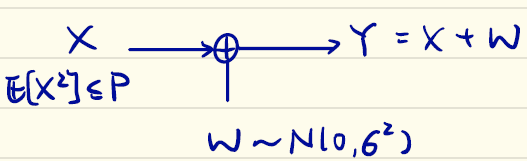 X → ⊕ → Y = X + W
E[X²] ≤ P
W ~ N(0, σ²)